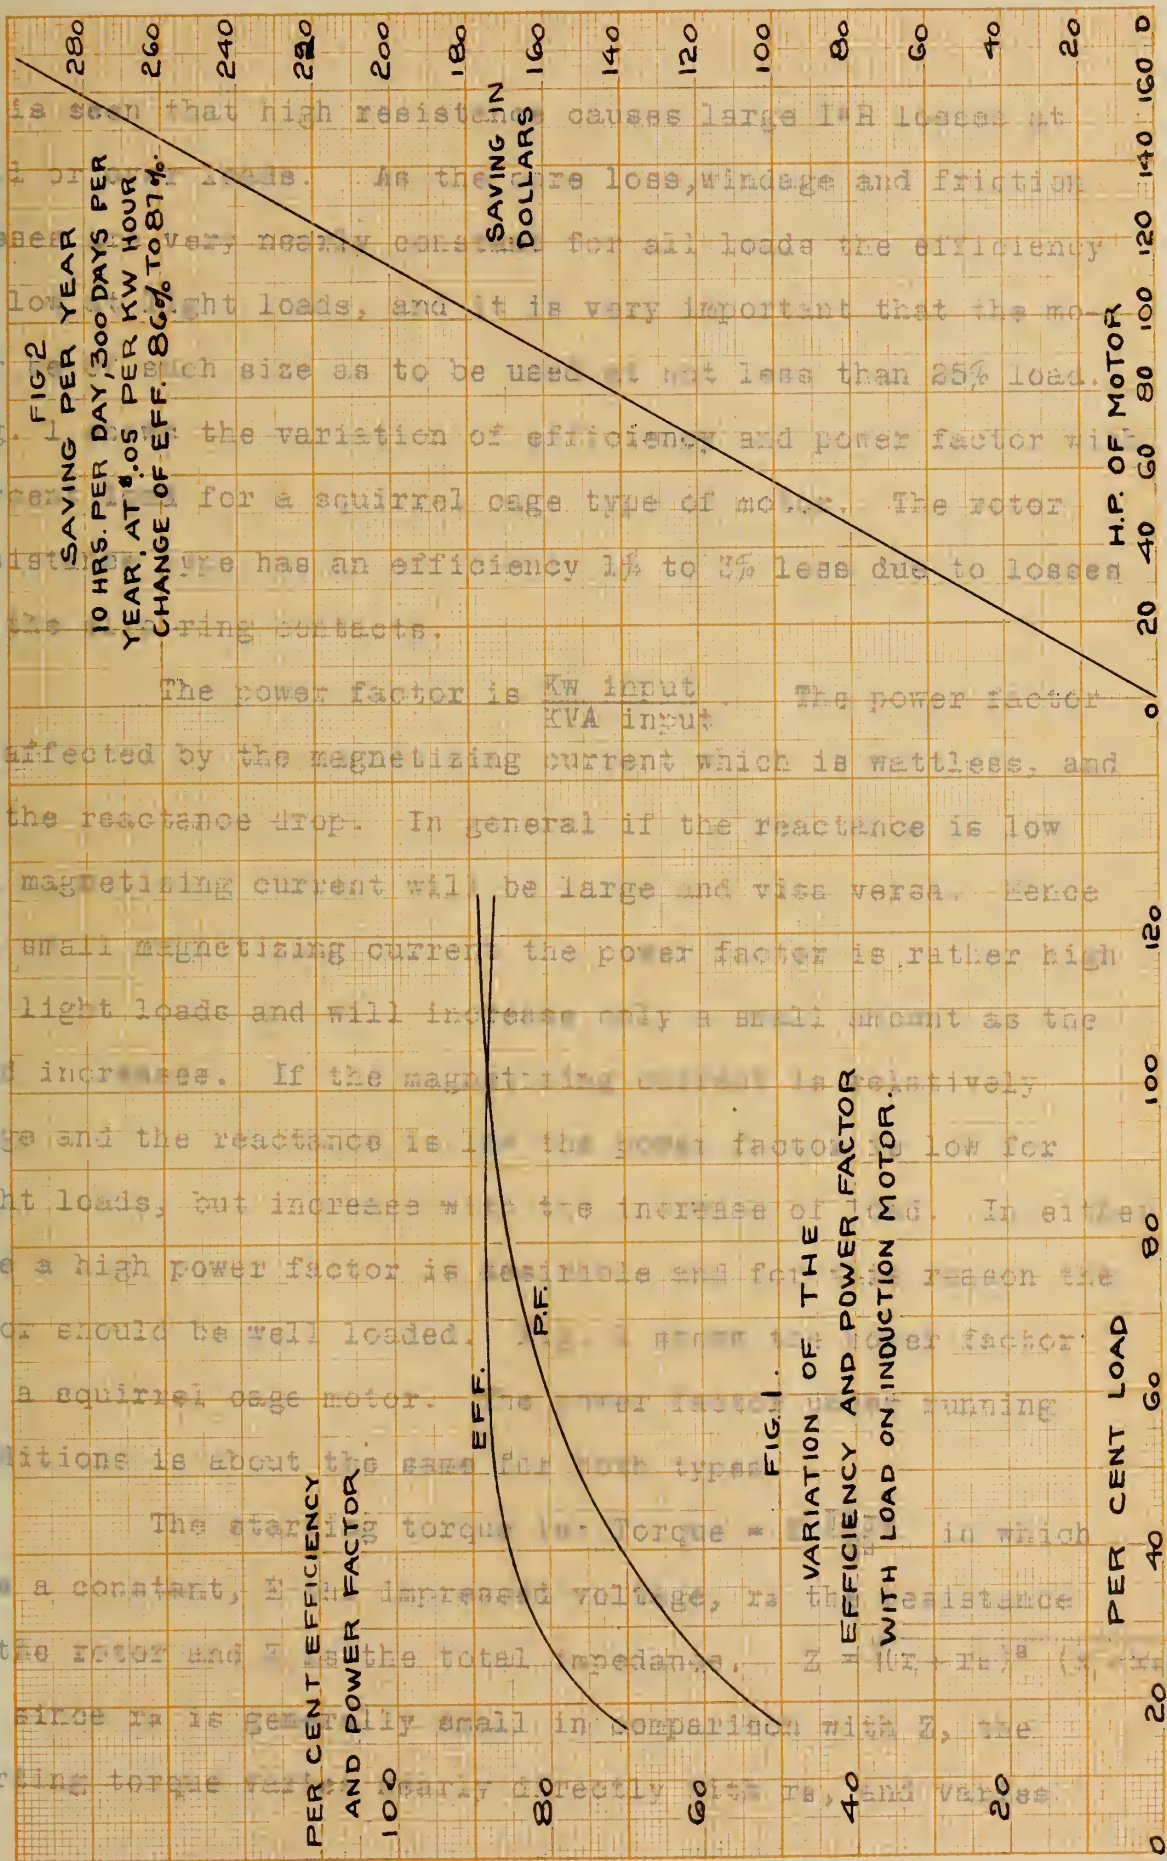 FIG 2
SAVING PER YEAR
10 HRS. PER DAY, 300 DAYS PER
YEAR, AT $.05 PER KW HOUR
CHANGE OF EFF. 86% TO 87%.
SAVING IN
DOLLARS
280
260
240
220
200
180
160
140
120
100
80
60
40
20
0
0 20 40 60 80 100 120 140 160
H.P. OF MOTOR
PER CENT EFFICIENCY
AND POWER FACTOR
100
80
60
40
20
0
20 40 60 80 100 120
PER CENT LOAD
EFF.
P.F.
FIG. 1.
VARIATION OF THE
EFFICIENCY AND POWER FACTOR
WITH LOAD ON INDUCTION MOTOR.
is seen that high resistance causes large I²R losses at
loads. As the core loss, windage and friction
very nearly constant for all loads the efficiency
low at light loads, and it is very important that the mo-
such size as to be used at not less than 25% load.
1 the variation of efficiency and power factor with
for a squirrel cage type of motor. The rotor
type has an efficiency 1% to 3% less due to losses
the ring contacts.
The power factor is Kw input / KVA input. The power factor
affected by the magnetizing current which is wattless, and
the reactance drop. In general if the reactance is low
magnetizing current will be large and visa versa. Hence
small magnetizing current the power factor is rather high
light loads and will increase only a small amount as the
increases. If the magnetizing current is relatively
and the reactance is low the power factor is low for
loads, but increase with the increase of load. In either
a high power factor is desirible and for this reason the
should be well loaded. Fig. 1 shows the power factor
a squirrel cage motor. The power factor under running
is about the same for both types.
The starting torque Torque = in which
a constant, E the impressed voltage, r₂ the resistance
the rotor and Z is the total impedance. Z =
since r₂ is generally small in comparison with Z, the
torque varies nearly directly with r₂, and varies